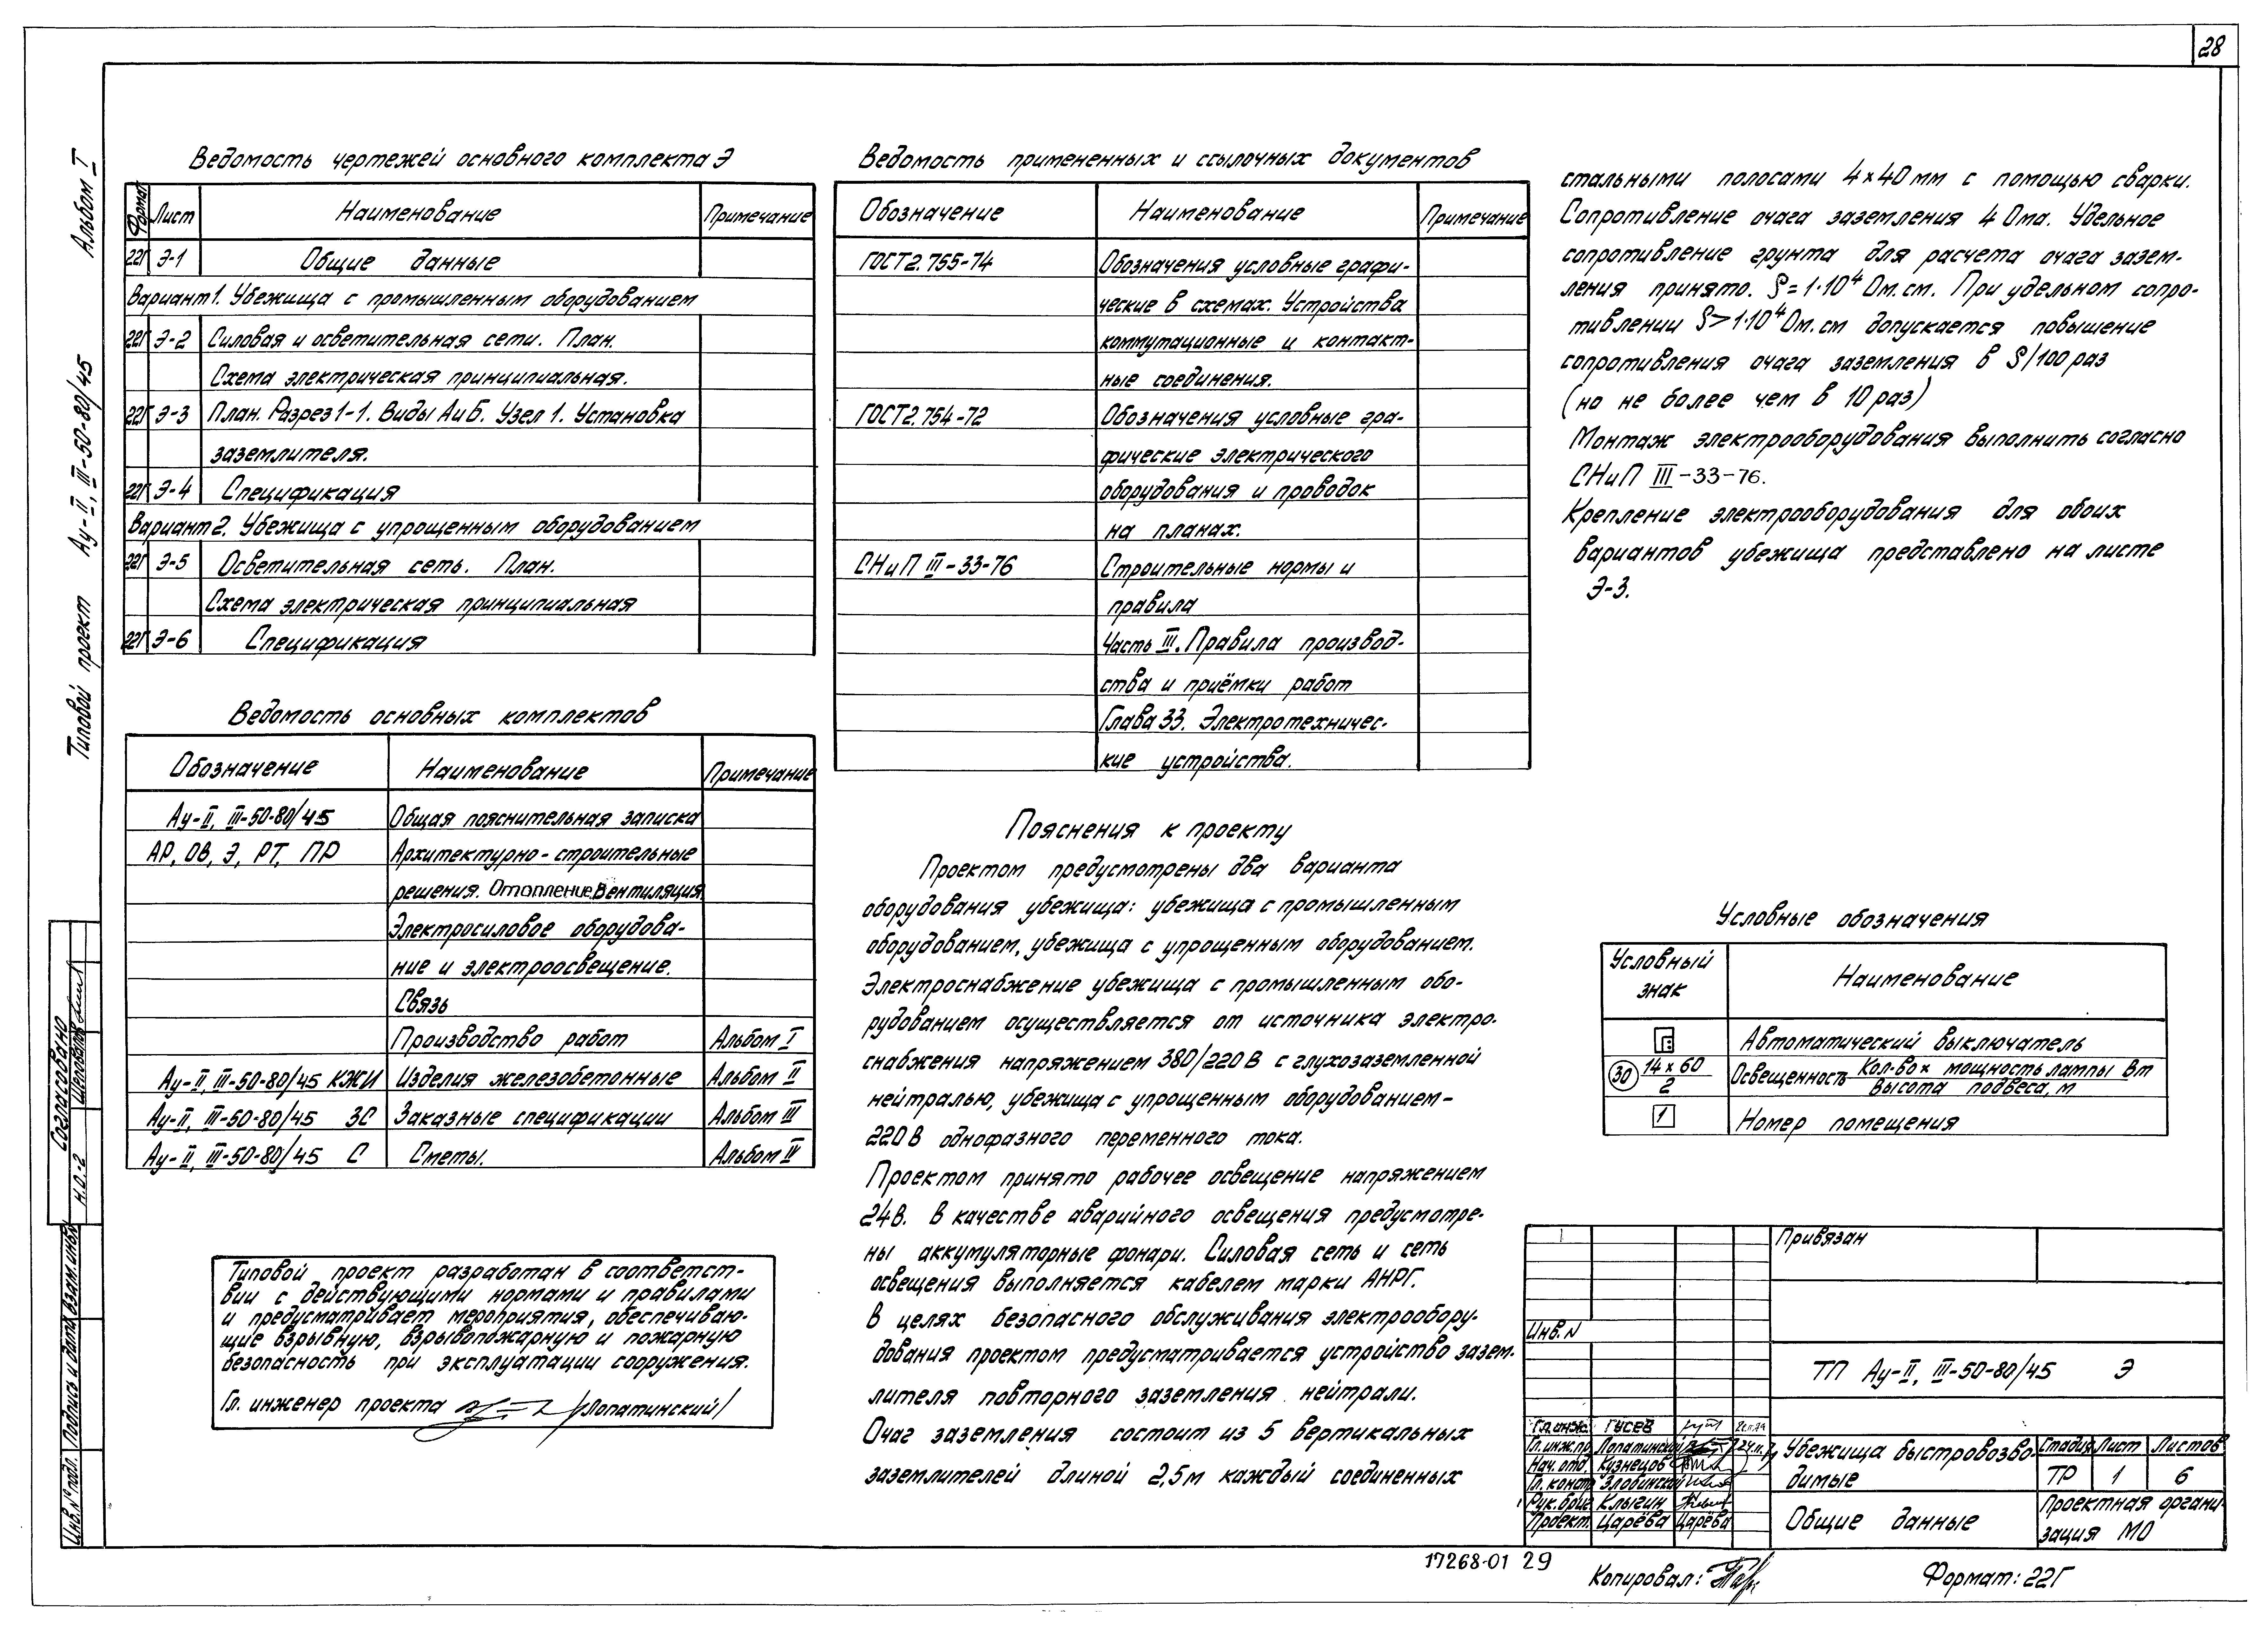 28
Альбом I
Типовой проект Ау-II, III-50-80/45
Ведомость чертежей основного комплекта Э
Формат Лист Наименование Примечание
22Г Э-1 Общие данные
Вариант 1. Убежища с промышленным оборудованием
22Г Э-2 Силовая и осветительная сети. План.
Схема электрическая принципиальная.
22Г Э-3 План. Разрез 1-1. Виды А и Б. Узел 1. Установка
заземлителя.
22Г Э-4 Спецификация
Вариант 2. Убежища с упрощенным оборудованием
22Г Э-5 Осветительная сеть. План.
Схема электрическая принципиальная
22Г Э-6 Спецификация
Ведомость основных комплектов
Обозначение Наименование Примечание
Ау-II, III-50-80/45 Общая пояснительная записка
АР, ОВ, Э, РТ, ПР Архитектурно-строительные
решения. Отопление. Вентиляция.
Электросиловое оборудова-
ние и электроосвещение.
Связь
Производство работ Альбом I
Ау-II, III-50-80/45 КЖИ Изделия железобетонные Альбом II
Ау-II, III-50-80/45 ЗС Заказные спецификации Альбом III
Ау-II, III-50-80/45 С Сметы. Альбом IV
Типовой проект разработан в соответст-
вии с действующими нормами и правилами
и предусматривает мероприятия, обеспечиваю-
щие взрывную, взрывопожарную и пожарную
безопасность при эксплуатации сооружения.
Гл. инженер проекта /Лопатинский/
Ведомость примененных и ссылочных документов
Обозначение Наименование Примечание
ГОСТ 2.755-74 Обозначения условные графи-
ческие в схемах. Устройства
коммутационные и контакт-
ные соединения.
ГОСТ 2.754-72 Обозначения условные гра-
фические электрического
оборудования и проводок
на планах.
СНиП III-33-76 Строительные нормы и
правила
Часть III. Правила производ-
ства и приёмки работ
Глава 33. Электротехничес-
кие устройства.
Пояснения к проекту
Проектом предусмотрены два варианта
оборудования убежища: убежища с промышленным
оборудованием, убежища с упрощенным оборудованием.
Электроснабжение убежища с промышленным обо-
рудованием осуществляется от источника электро-
снабжения напряжением 380/220 В с глухозаземленной
нейтралью, убежища с упрощенным оборудованием-
220 В однофазного переменного тока.
Проектом принято рабочее освещение напряжением
24в. В качестве аварийного освещения предусмотре-
ны аккумуляторные фонари. Силовая сеть и сеть
освещения выполняется кабелем марки АНРГ.
В целях безопасного обслуживания электрообору-
дования проектом предусматривается устройство зазем-
лителя повторного заземления нейтрали.
Очаг заземления состоит из 5 вертикальных
заземлителей длиной 2,5м каждый соединенных
стальными полосами 4×40 мм с помощью сварки.
Сопротивление очага заземления 4 Ома. Удельное
сопротивление грунта для расчета очага зазем-
ления принято. ρ=1·10⁴ Ом.см. При удельном сопро-
тивлении ρ>1·10⁴ Ом.см допускается повышение
сопротивления очага заземления в ρ/100 раз
(но не более чем в 10 раз)
Монтаж электрооборудования выполнить согласно
СНиП III-33-76.
Крепление электрооборудования для обоих
вариантов убежища представлено на листе
Э-3.
Условные обозначения
Условный знак Наименование
Автоматический выключатель
30 14×60/2 Освещенность Кол-во × мощность лампы Вт/Высота подвеса, м
1 Номер помещения
Согласовано
Н.О.-2
Инв.№ подл. Подпись и дата Взам.инв.№
Привязан
Инв.N
ТП Ау-II, III-50-80/45 Э
Гл.инж. Гусев
Гл.инж.пр. Лопатинский
Нач.отд. Кузнецов
Гл.констр. Злобинский
Рук.бриг. Клыгин
Проект. Царёва Царёва
Убежища быстровозво-
димые
Стадия Лист Листов
ТР 1 6
Общие данные
Проектная органи-
зация МО
17268-01 29
Копировал:
Формат: 22Г